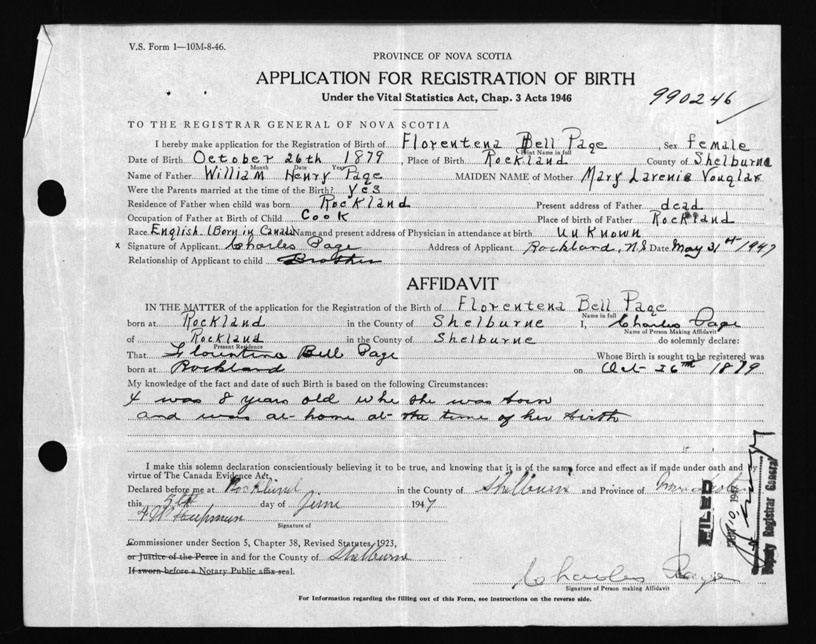 V.S. Form 1—10M-8-46.
PROVINCE OF NOVA SCOTIA
APPLICATION FOR REGISTRATION OF BIRTH
Under the Vital Statistics Act, Chap. 3 Acts 1946
990246
TO THE REGISTRAR GENERAL OF NOVA SCOTIA
I hereby make application for the Registration of Birth of Florentena Bell Page, Sex female
Print Name in full
Date of Birth October 26th 1879, Place of Birth Rockland County of Shelburne
Month Date Year
Name of Father William Henry Page MAIDEN NAME of Mother Mary Larenia
Were the Parents married at the time of the Birth? yes
Residence of Father when child was born Rockland Present address of Father dead
Occupation of Father at Birth of Child Cook Place of birth of Father Rockland
Race English (Born in Canada Name and present address of Physician in attendance at birth unknown
x Signature of Applicant Charles Page Address of Applicant Rockland, NS Date May 31st 1947
Relationship of Applicant to child Brother
AFFIDAVIT
IN THE MATTER of the application for the Registration of the Birth of Florentena Bell Page
Name in full
born at Rockland in the County of Shelburne I, Charles Page
Name of Person Making Affidavit
of Rockland in the County of Shelburne do solemnly declare:
Present Residence
That Florentina Bell Page Whose Birth is sought to be registered was
born at Rockland on Oct 26th 1879
My knowledge of the fact and date of such Birth is based on the following Circumstances:
I was 8 years old whe she was born
and was at home at the time of her birth
I make this solemn declaration conscientiously believing it to be true, and knowing that it is of the same force and effect as if made under oath and by
virtue of The Canada Evidence Act.
Declared before me at Rockland in the County of Shelburne and Province of Nova Scotia
this 5th day of June 1947
Signature of
Commissioner under Section 5, Chapter 38, Revised Statutes, 1923,
or Justice of the Peace in and for the County of Shelburne
If sworn before a Notary Public affix seal.
FILED
1947
Deputy Registrar General
Charles Page
Signature of Person making Affidavit
For Information regarding the filling out of this Form, see instructions on the reverse side.